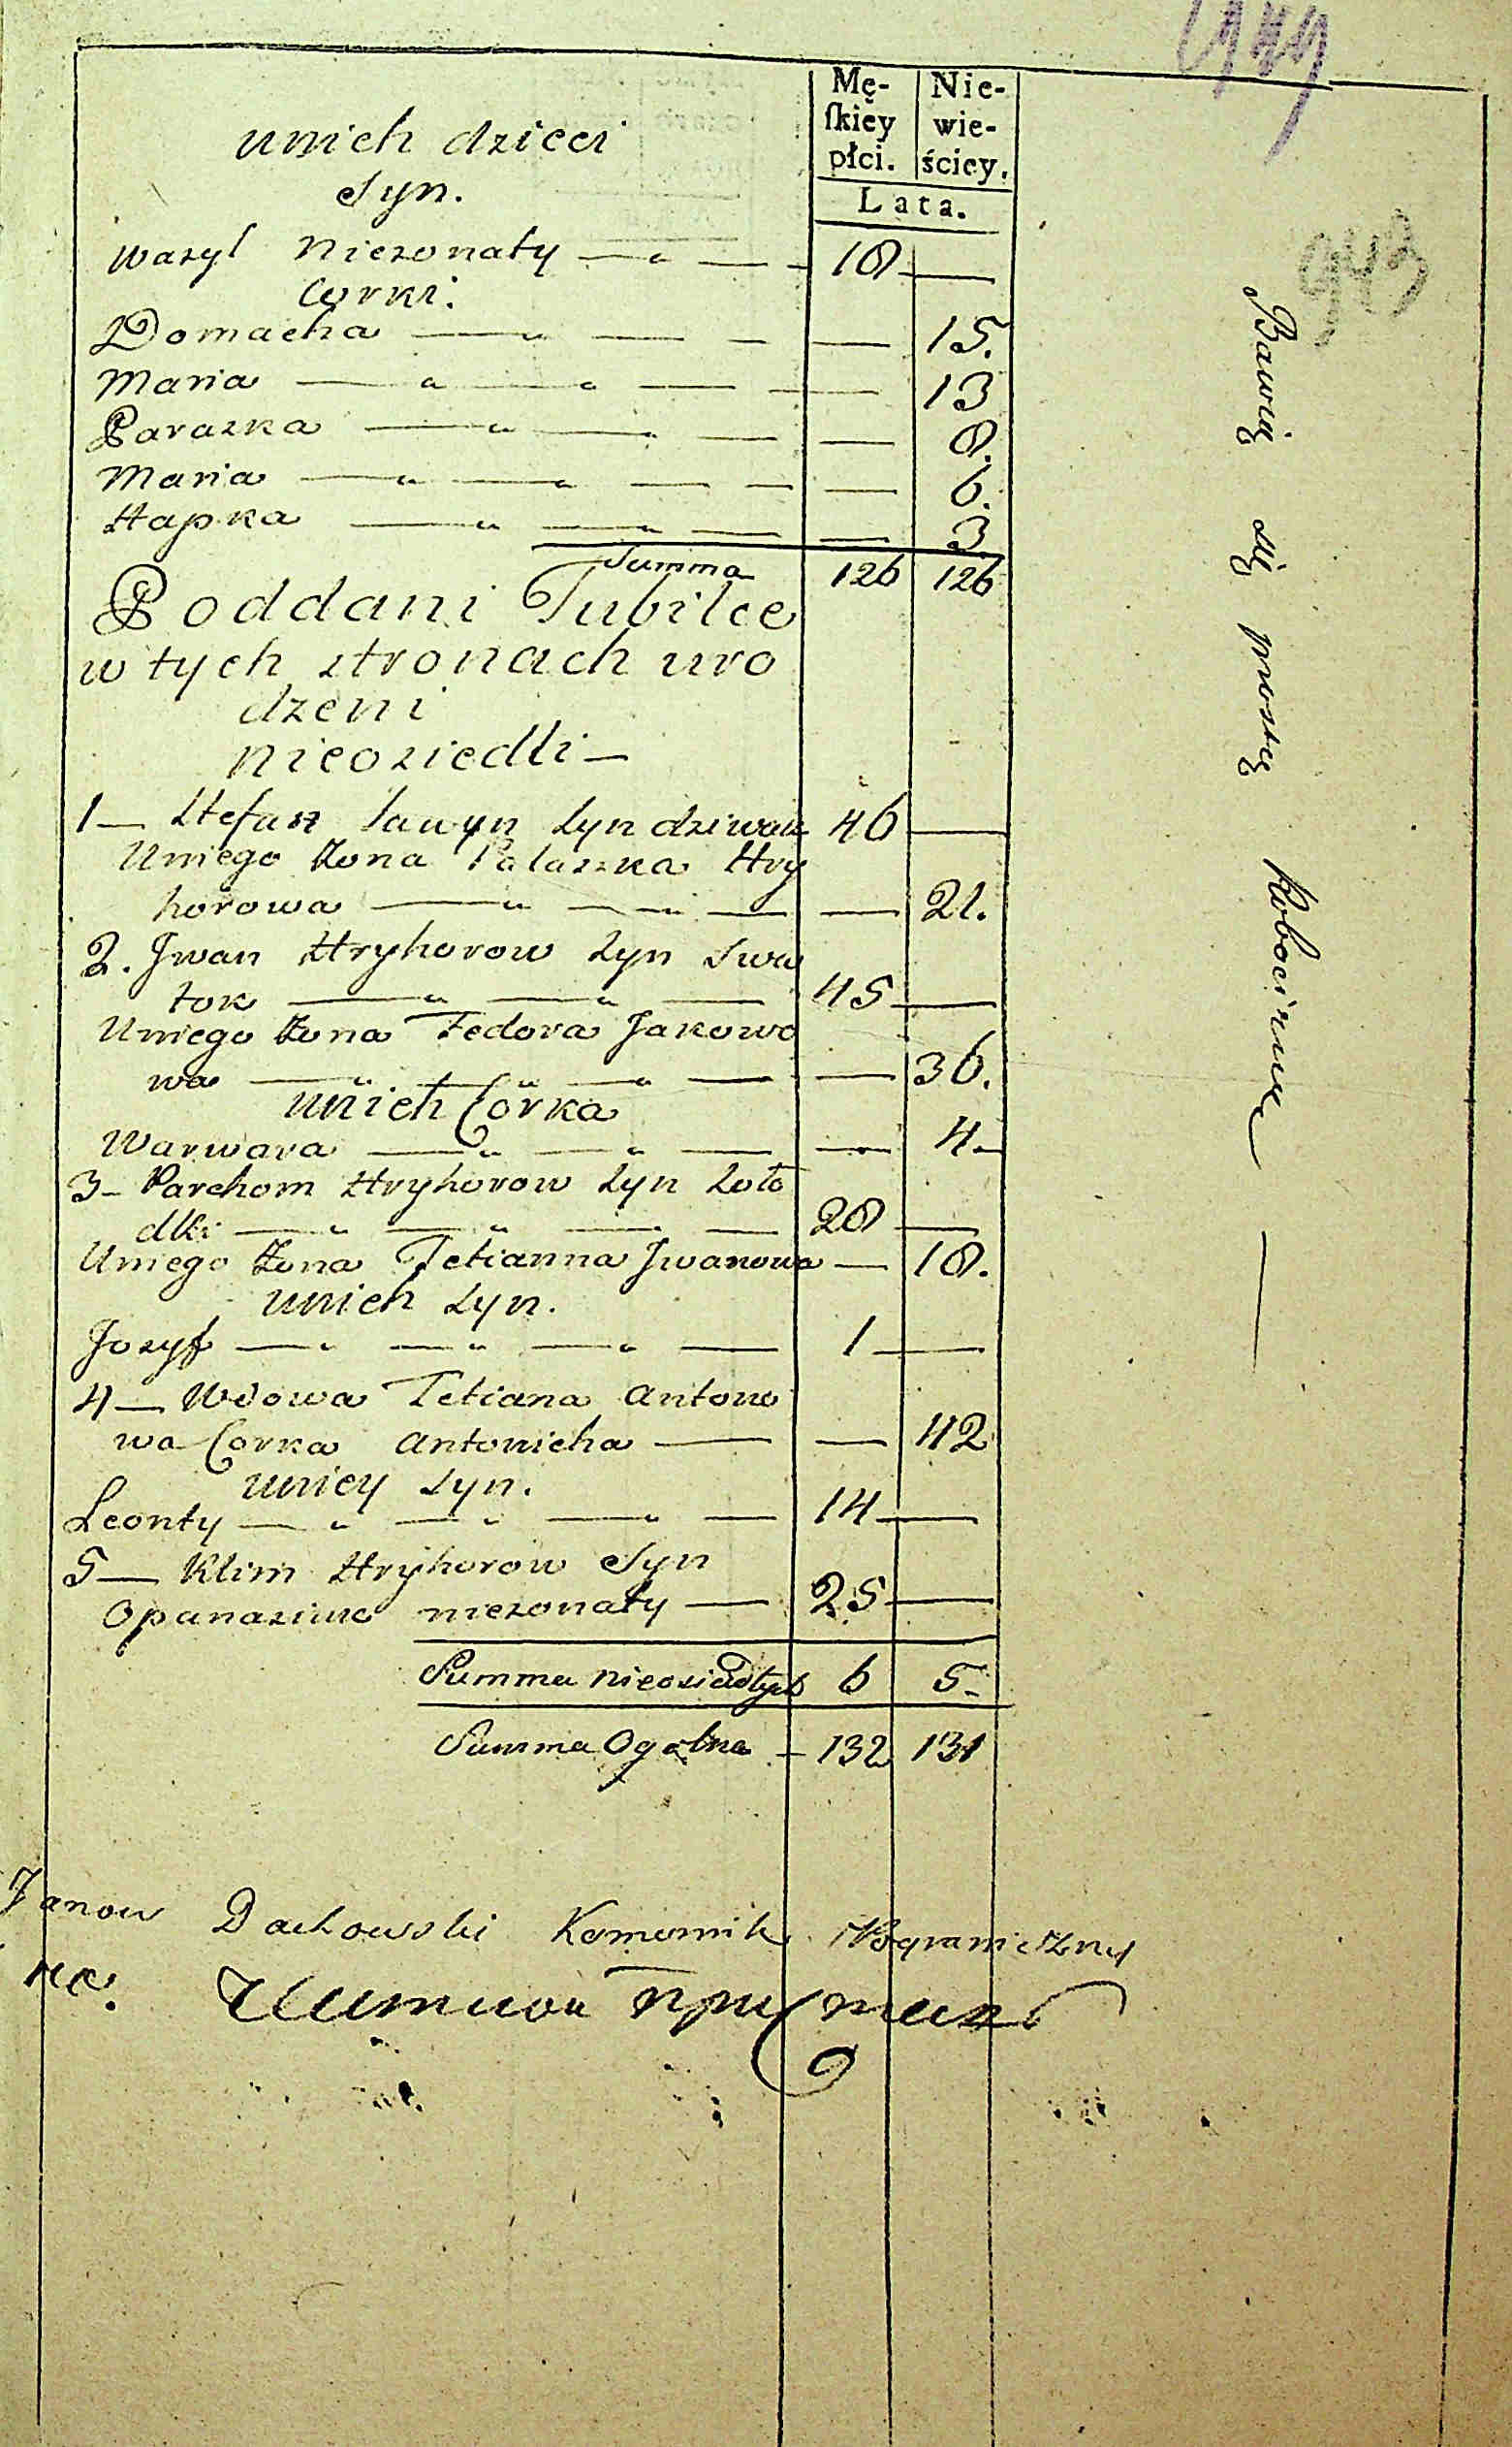 Mę-
ſkiey
płci.
Nie-
wie-
ściey.
Lata.
943
unich dzieci
Syn.
Wasyl Niezonaty 18
Corki.
Domacha 15.
Maria 13
Paraska 8.
Maria 6.
Hapka 3
Summa 126 126
Poddani Tubilce
w tych stronach uro
dzeni
nieosiedli
1 Stefan Sawyn Syn 46
Uniego Żona Palaszka Hry
horowa 21.
2. Jwan Hryhorow Syn Swa
tok 45
Uniego Żona Fedora Jakowo
wa 36.
unich Corka
Warwara 4
3 Parchom Hryhorow Syn Soło
dki 28
Uniego Żona Tetianna Jwanowa 18.
unich Syn.
Jozyf 1
4 Wdowa Tetiana Antono
wa Corka Antonicha 42
uniey Syn.
Leonty 14
5 Klim Hryhorow Syn
Opanasiuc niezonaty 25
Summa nieosiadłych 6 5
Summa Ogolna 132 131
Bawią się prostą Robocizną
Dachowski Komornik Pograniczny